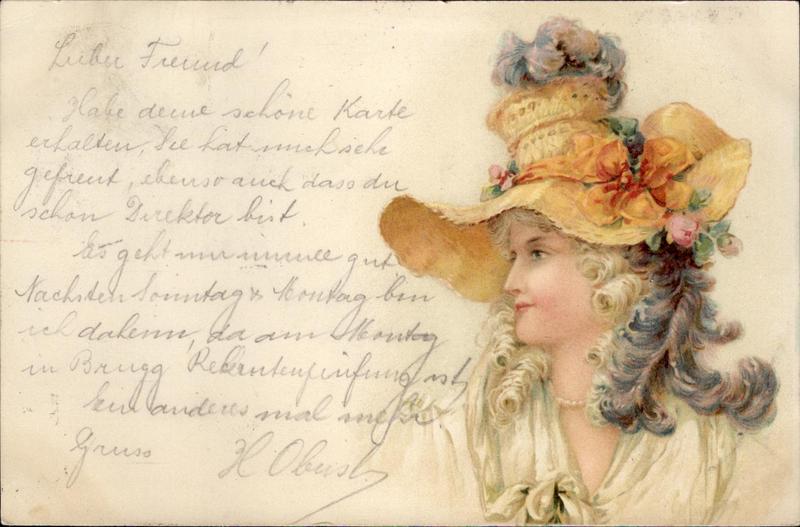 Lieber Freund!
Habe deine schöne Karte
erhalten, Sie hat mich sehr
gefreut, ebenso auch dass du
schon Direktor bist.
Es geht mir immer gut
Nächsten Sonntag & Montag bin
ich daheim, da am Montag
in Brugg Rekrutenprüfung ist
Ein anderes mal mehr.
Gruss H Obrist